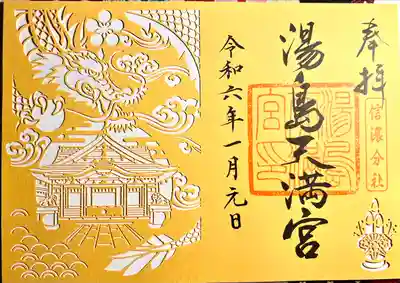 奉拝
信濃分社
湯島天満宮
湯島宮印
令和六年一月元日